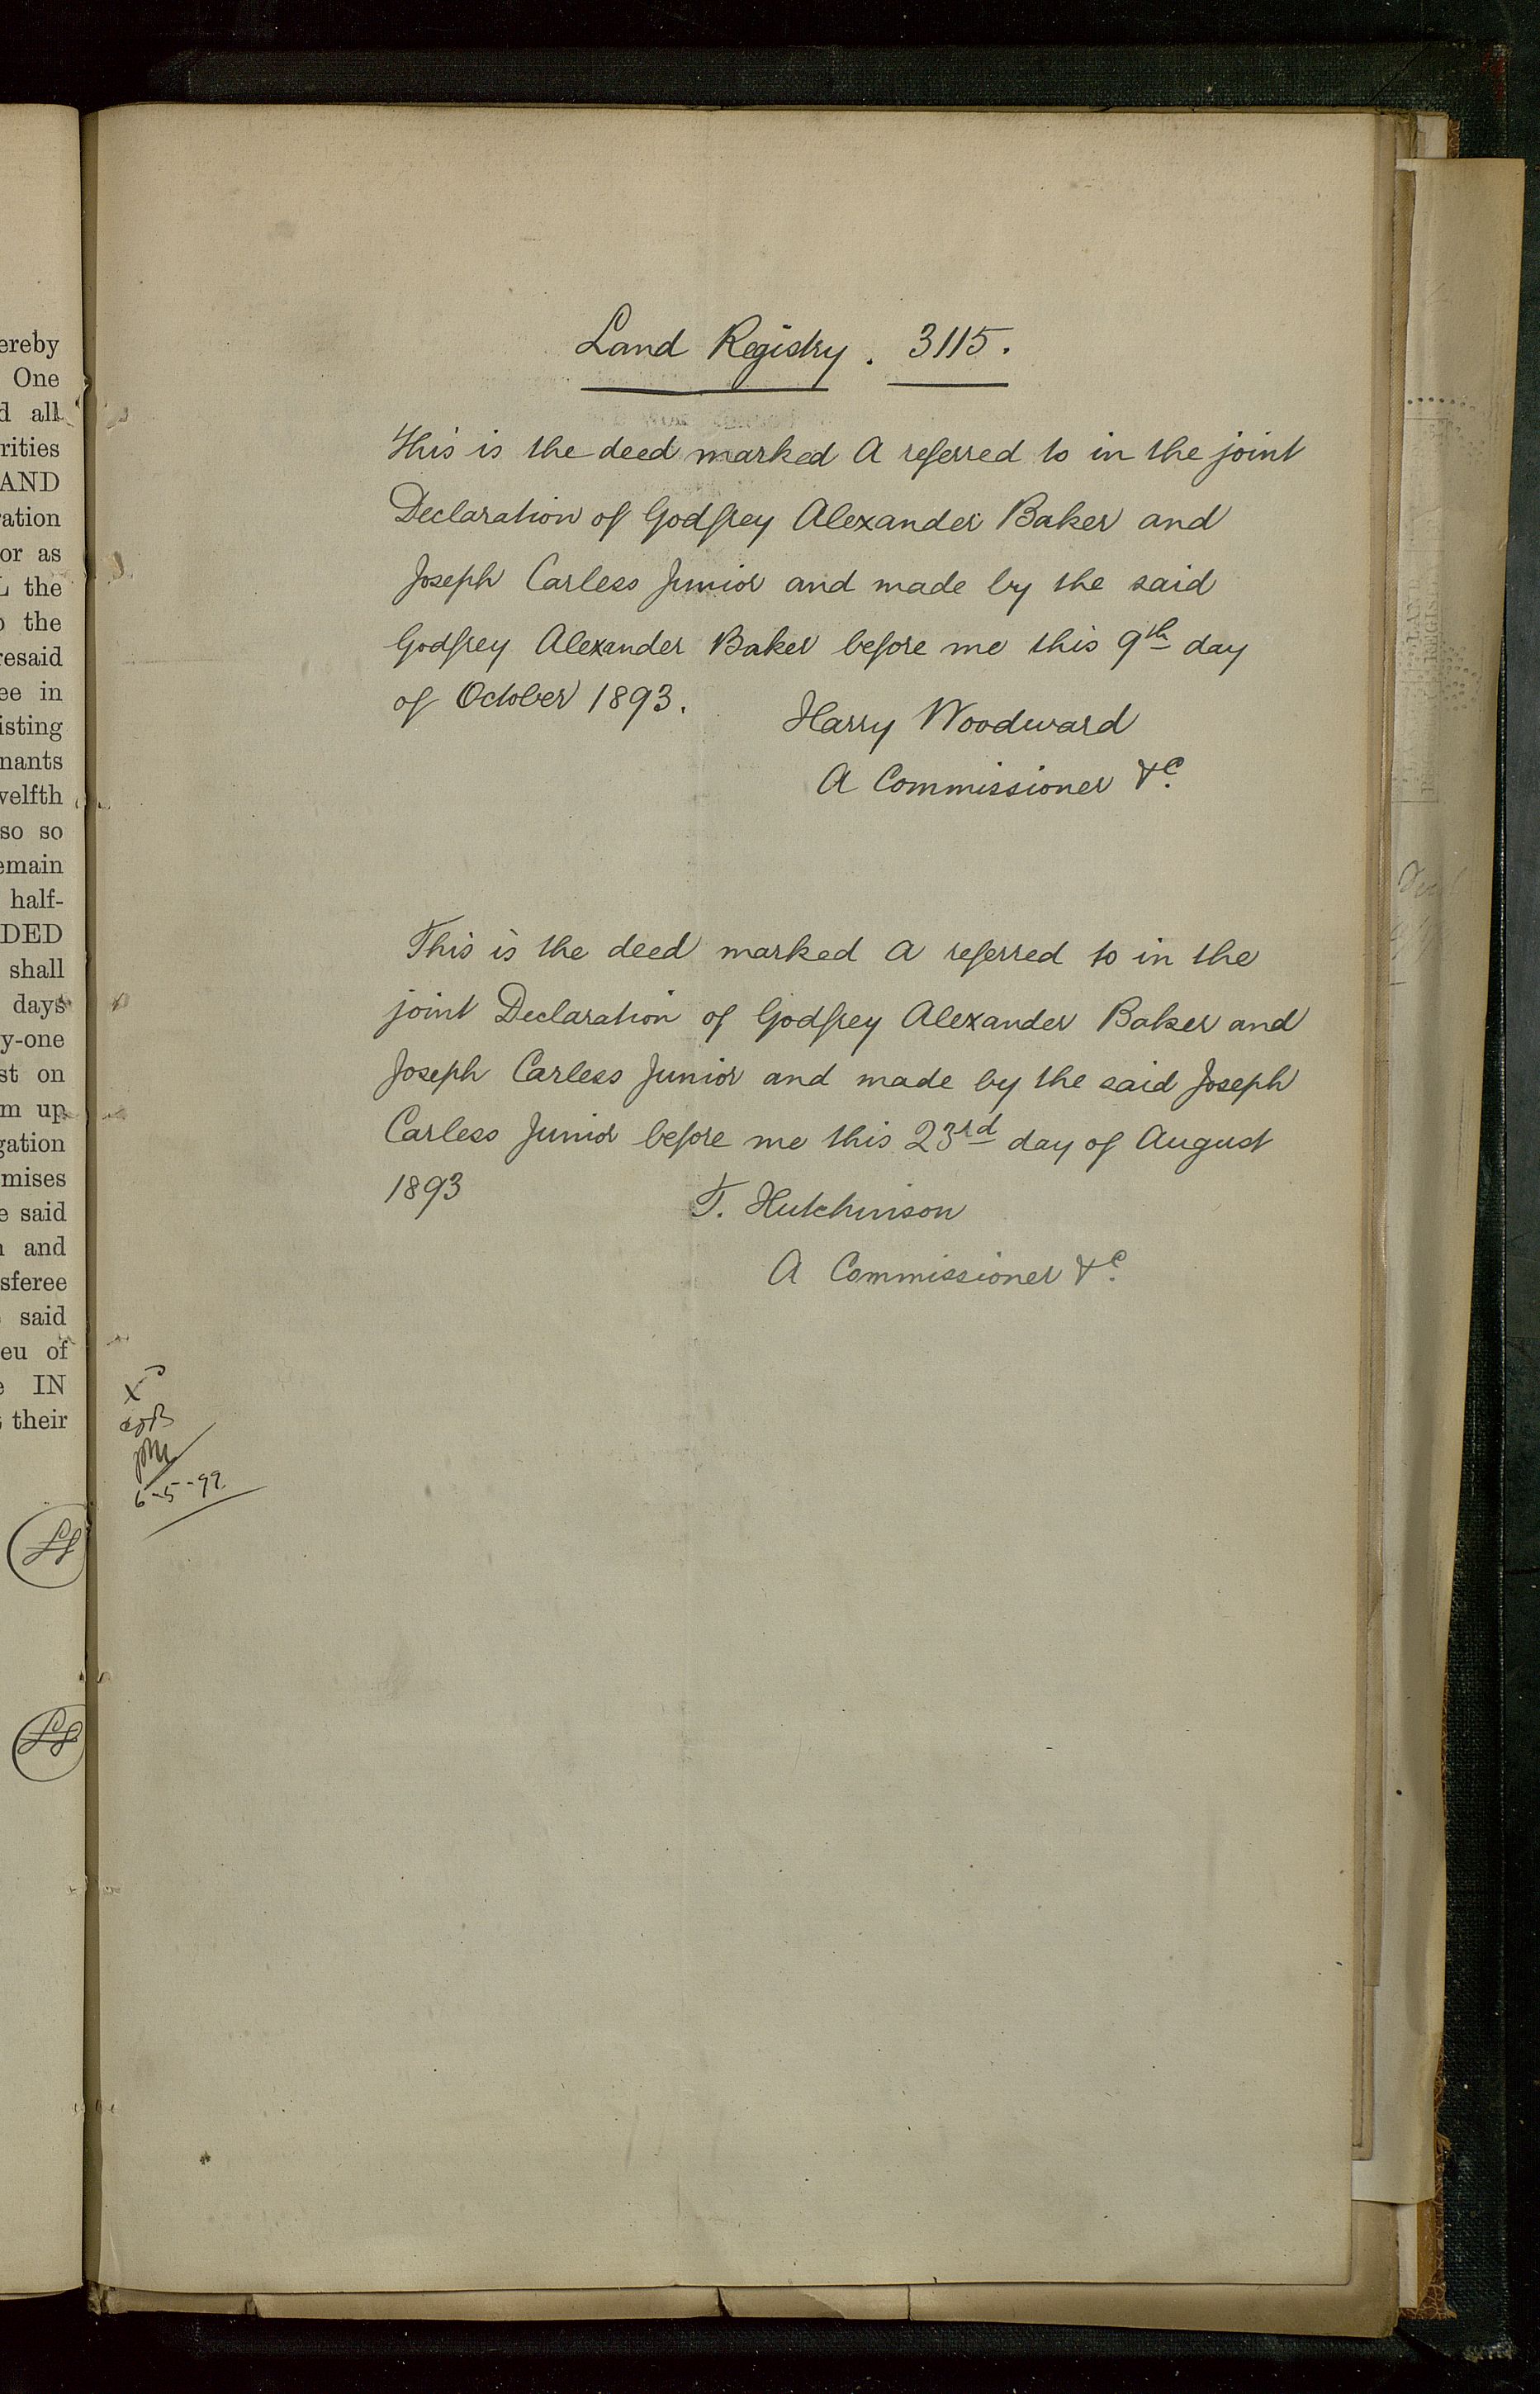 ereby
One
d all
rities
AND
ation
or as
L the
o the
resaid
ee in
isting
nants
welfth
so so
emain
half-
DED
shall
days
y-one
st on
m up
gation
mises
e said
n and
sferee
said
eu of
e IN
their
Land Registry. 3115.
This is the deed marked A referred to in the joint
Declaration of Godfrey Alexander Baker and
Joseph Carless Junior and made by the said
Godfrey Alexander Baker before me this 9th day
of October 1893.
Harry Woodward
A Commissioner &c.
This is the deed marked A referred to in the
joint Declaration of Godfrey Alexander Baker and
Joseph Carless Junior and made by the said Joseph
Carless Junior before me this 23rd day of August
1893
T. Hutchinson
A Commissioner &c.
X
6-5-99